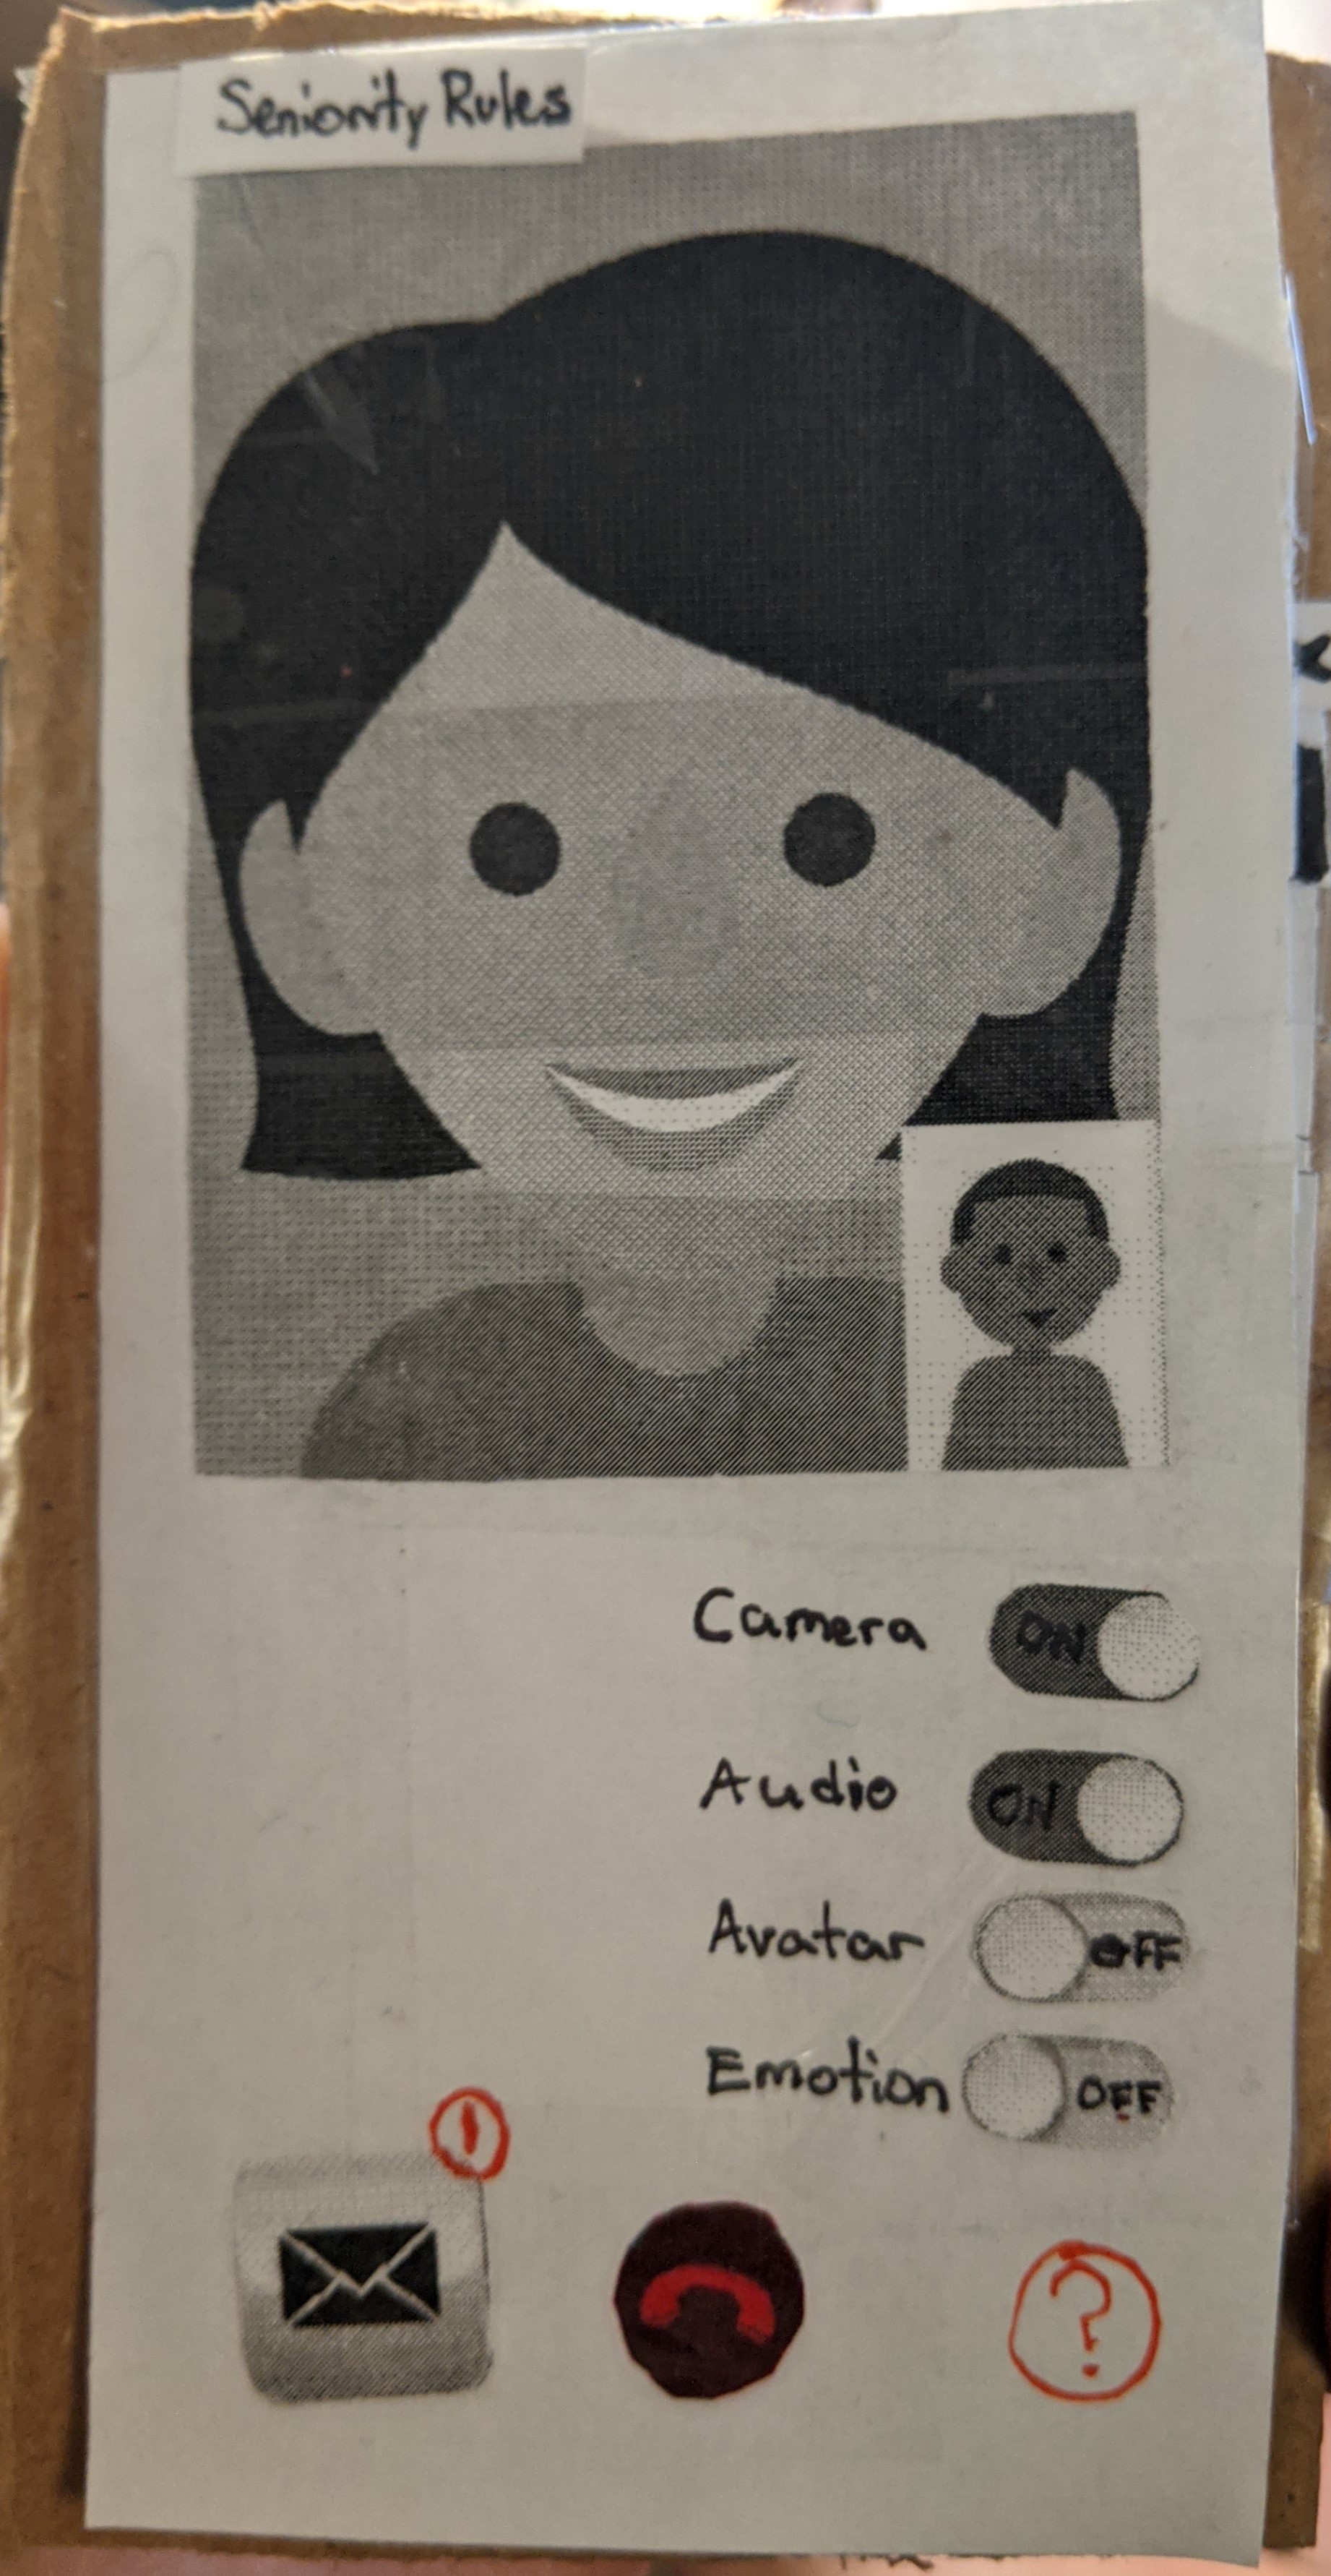 Seniority Rules
Camera ON
Audio ON
Avatar OFF
Emotion OFF
1
?